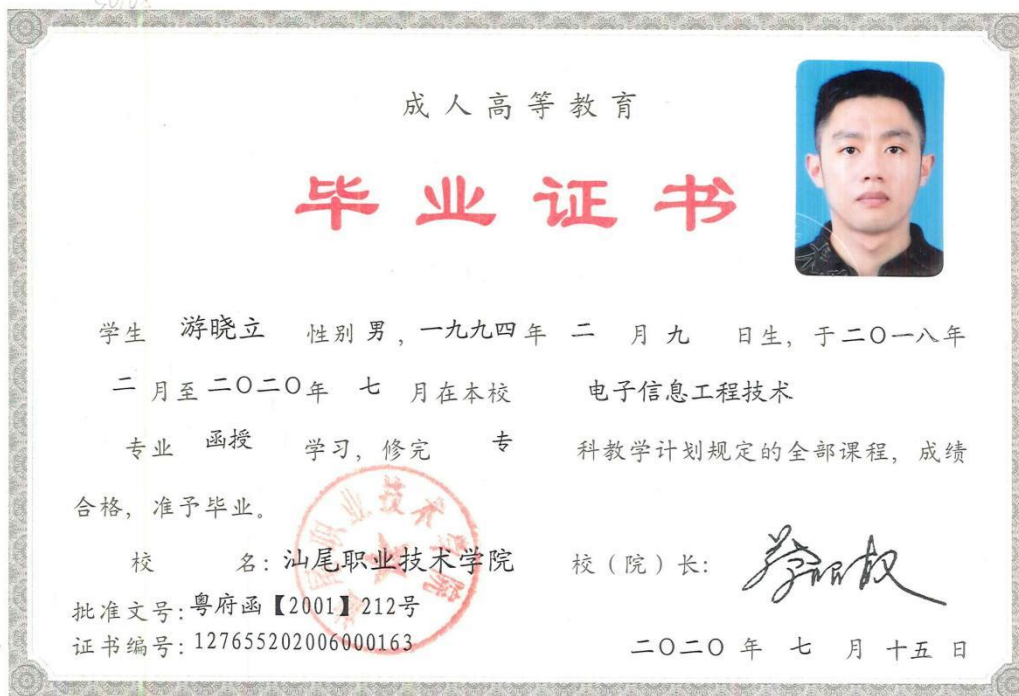 成人高等教育
毕业证书
学生 游晓立 性别 男，一九九四年 二 月 九 日生，于二〇一八年
二 月至 二〇二〇年 七 月在本校 电子信息工程技术
专业 函授 学习，修完 专 科教学计划规定的全部课程，成绩
合格，准予毕业。
校 名：汕尾职业技术学院 校（院）长：
批准文号：粤府函【2001】212号
证书编号：127655202006000163
二〇二〇 年 七 月 十五 日
汕尾职业技术学院